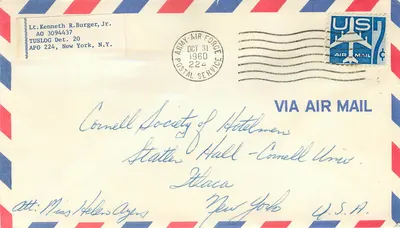 Lt. Kenneth R. Burger, Jr.
AO 3094437
TUSLOG Det. 20
APO 224, New York, N.Y.
ARMY-AIR FORCE
OCT 31
1960
224
POSTAL SERVICE
U.S.
7¢
AIR MAIL
VIA AIR MAIL
Cornell Society of Hotelmen
Statler Hall - Cornell Univ.
Ithaca
New York
U.S.A.
Att: Miss Helen Ayers